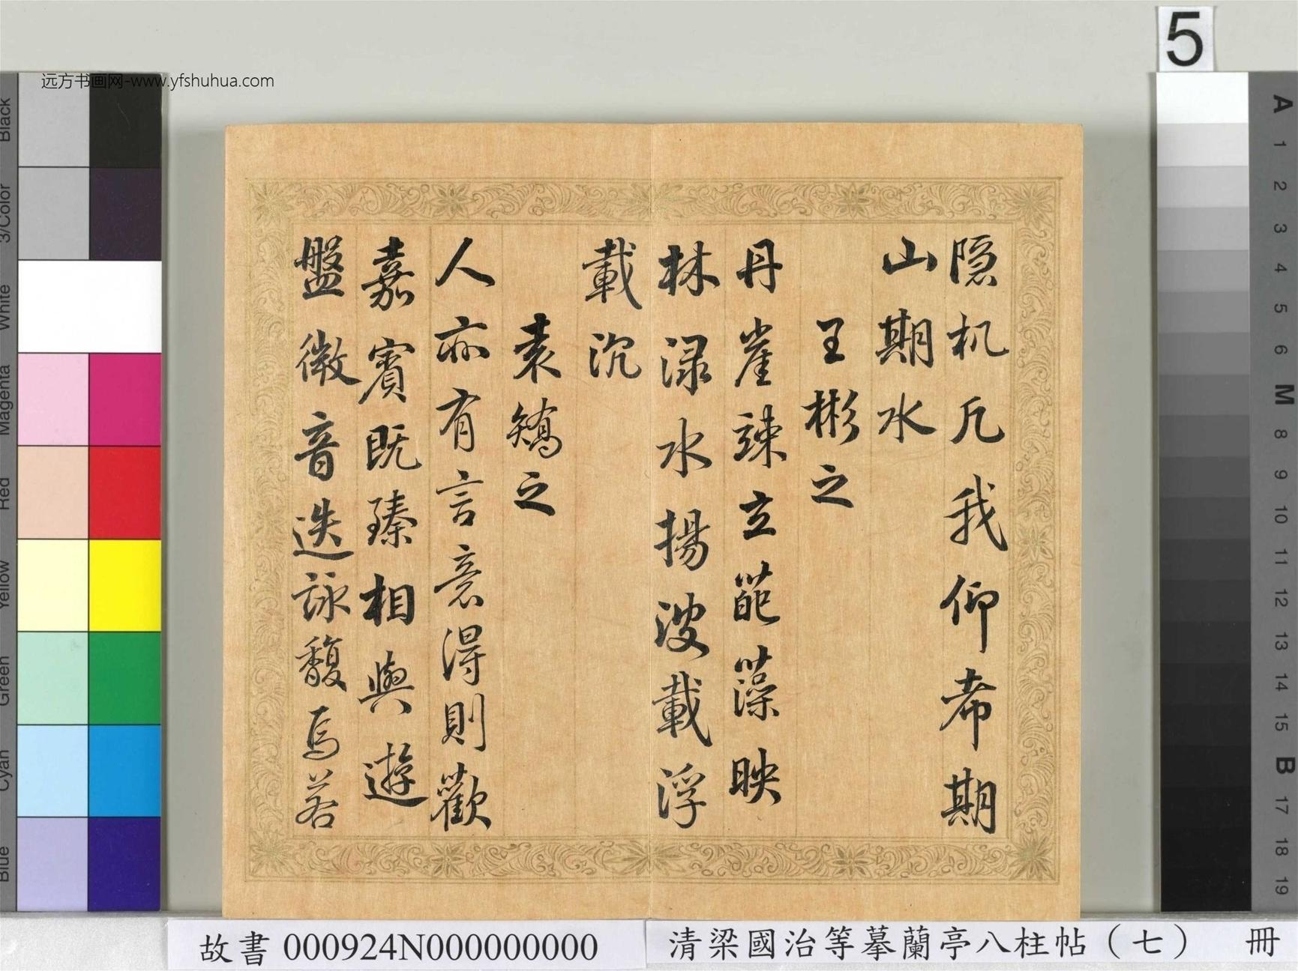 远方书画网-www.yfshuhua.com
5
隱机凡我仰希期
山期水
王彬之
丹崖竦立葩藻映
林渌水揚波載浮
載沉
袁矯之
人亦有言意得則歡
嘉賓既臻相與遊
盤微音迭詠馥焉若
Black
3/Color
White
Magenta
Red
Yellow
Green
Cyan
Blue
A
1
2
3
4
5
6
M
8
9
10
11
12
13
14
15
B
17
18
19
故書 000924N000000000
清梁國治等摹蘭亭八柱帖（七） 冊